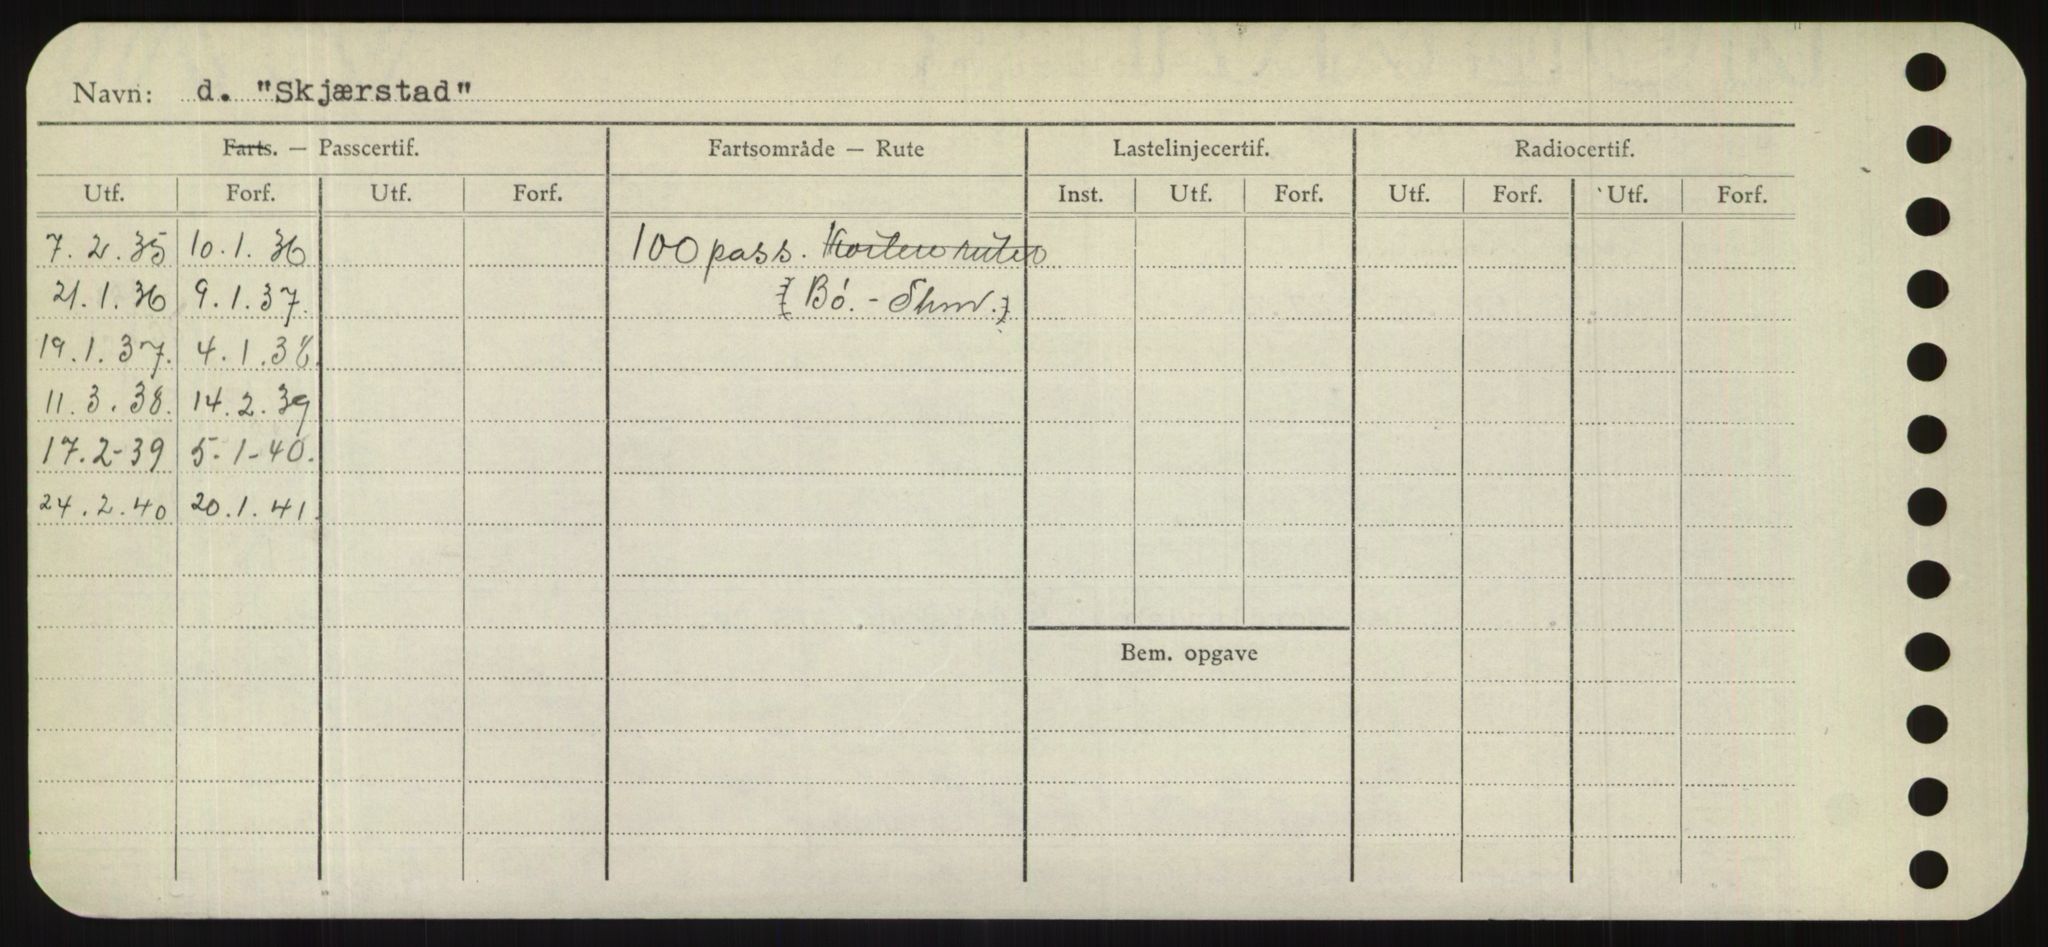 Navn: d. "Skjærstad"
Farts. — Passcertif. Fartsområde — Rute Lastelinjecertif. Radiocertif.
Utf. Forf. Utf. Forf. Inst. Utf. Forf. Utf. Forf. Utf. Forf.
7.2.35 10.1.36 100 pass.
21.1.36 9.1.37. Bó. -
19.1.37. 4.1.38.
11.3.38. 14.2.39
17.2-39 5-1-40.
24.2.40 20.1.41.
Bem. opgave